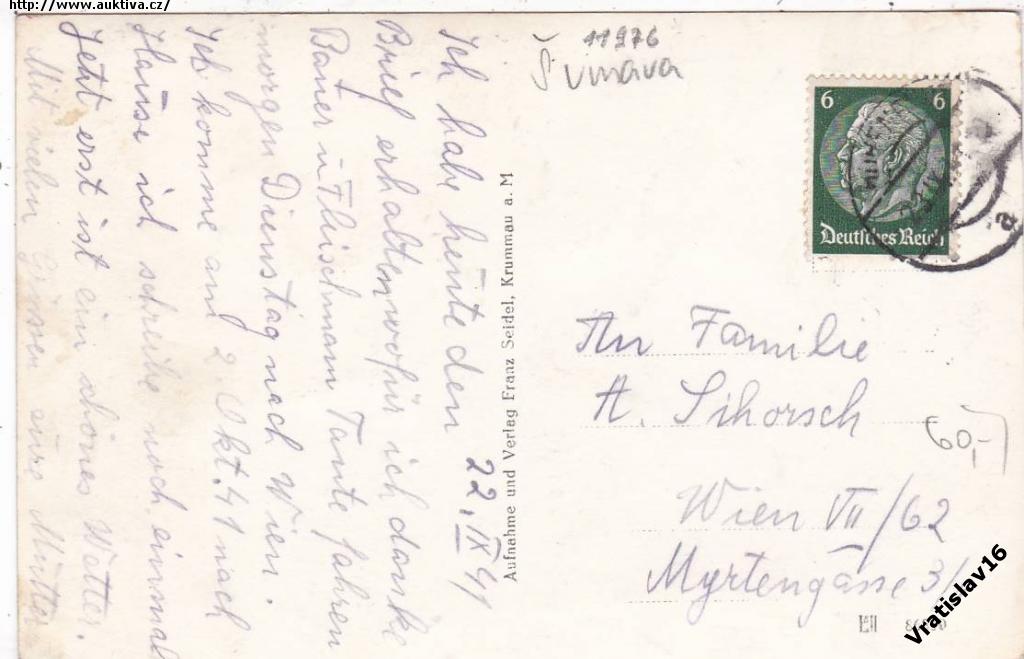 http://www.auktiva.cz/
11976
Šumava
22. IX 41
Ich habe heute den
Brief erhalten wofür ich danke
Bauer u Fleischmann Tante fahren
morgen Dienstag nach Wien.
Ich komme am 2. Okt. 41 nach
Hause ich schreibe noch einmal
Jetzt erst ist ein schönes Wetter.
Mit vielen Grüssen eure Mutter
Aufnahme und Verlag Franz Seidel, Krummau a. M
6 6
Deutsches Reich
An Familie
A. Sihorsch
Wien VII/62
Myrtengasse 3/
60,-
Vratislav16